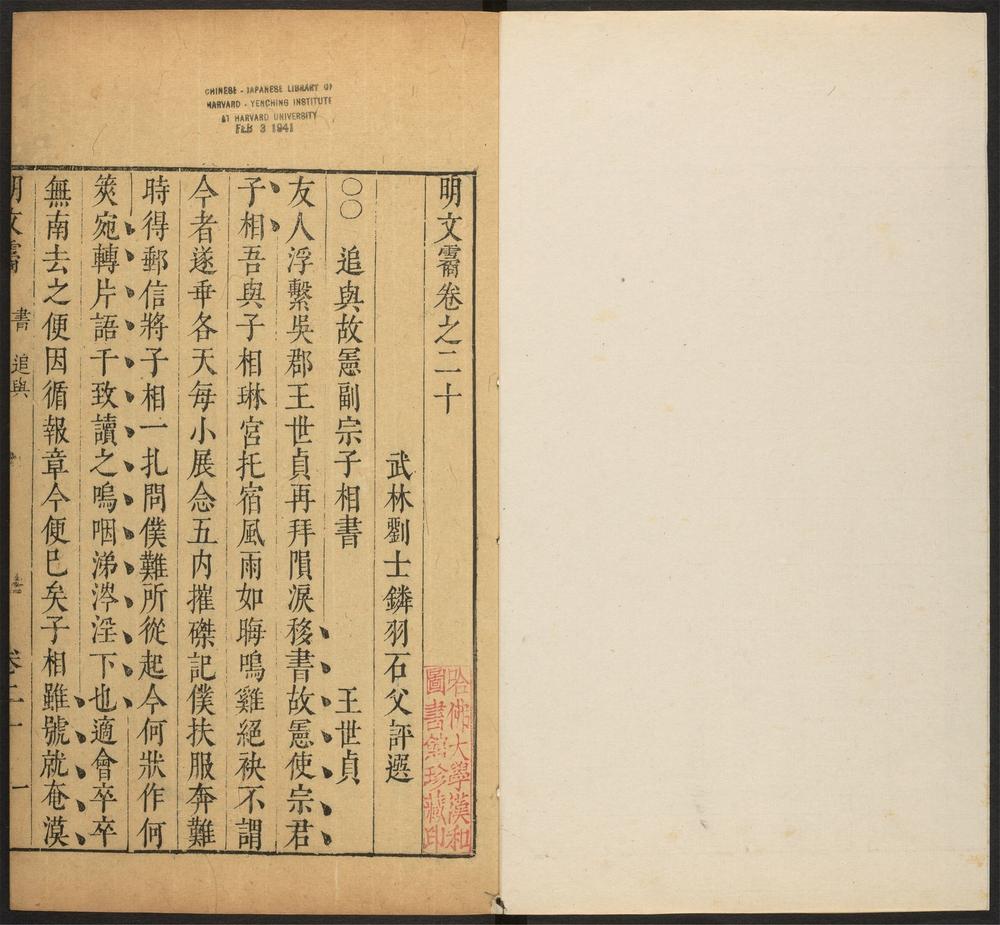 CHINESE - JAPANESE LIBRARY OF
HARVARD - YENCHING INSTITUTE
AT HARVARD UNIVERSITY
FEB 3 1941
明文霱卷之二十
武林劉士鏻羽石父評選
○○ 追與故憲副宗子相書 王世貞
友人浮繫吳郡王世貞再拜隕淚移書故憲使宗君
子相吾與子相琳宮托宿風雨如晦鳴雞絕袂不謂
今者遂垂各天每小展念五内摧磔記僕扶服奔難
時得郵信將子相一扎問僕難所從起今何狀作何
筴宛轉片語千致讀之嗚咽涕涔淫下也適會卒卒
無南去之便因循報章今便巳矣子相雖號就奄漠
明文霱 書 追與 卷二十 一
哈佛大學漢和
圖書館珍藏印